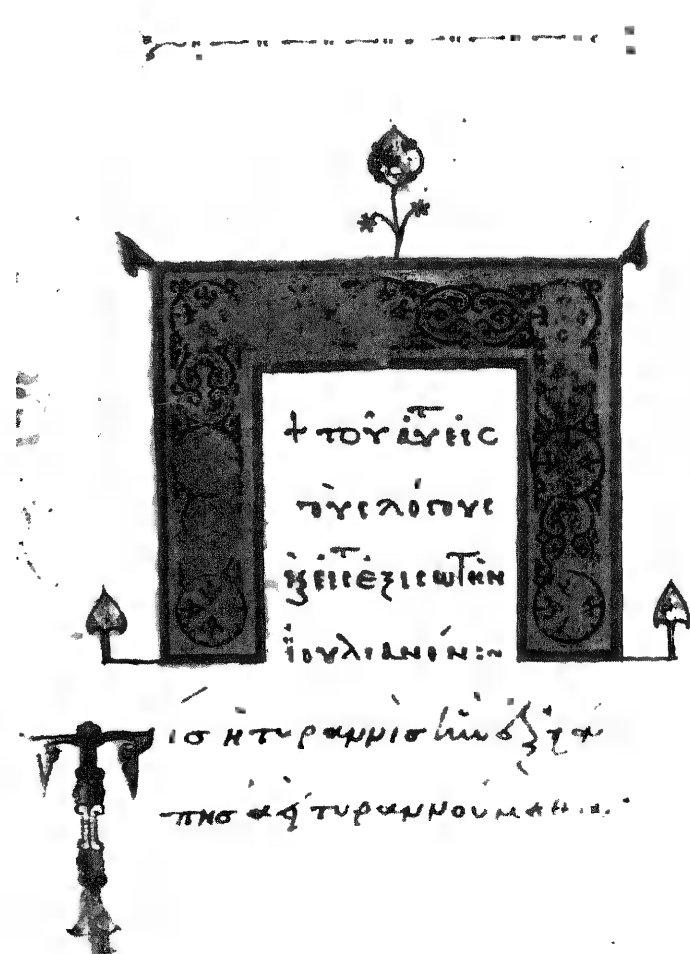 + τοῦ ἀυτ εἰς
τοὺς λόγους
κ εἰς τ ἐξισωτὴν
ἰουλιανόν:~
Τίς ἡ τυραννὶς ἣν ἐξ ἀγά
πης ἀεὶ τυραννούμεθα